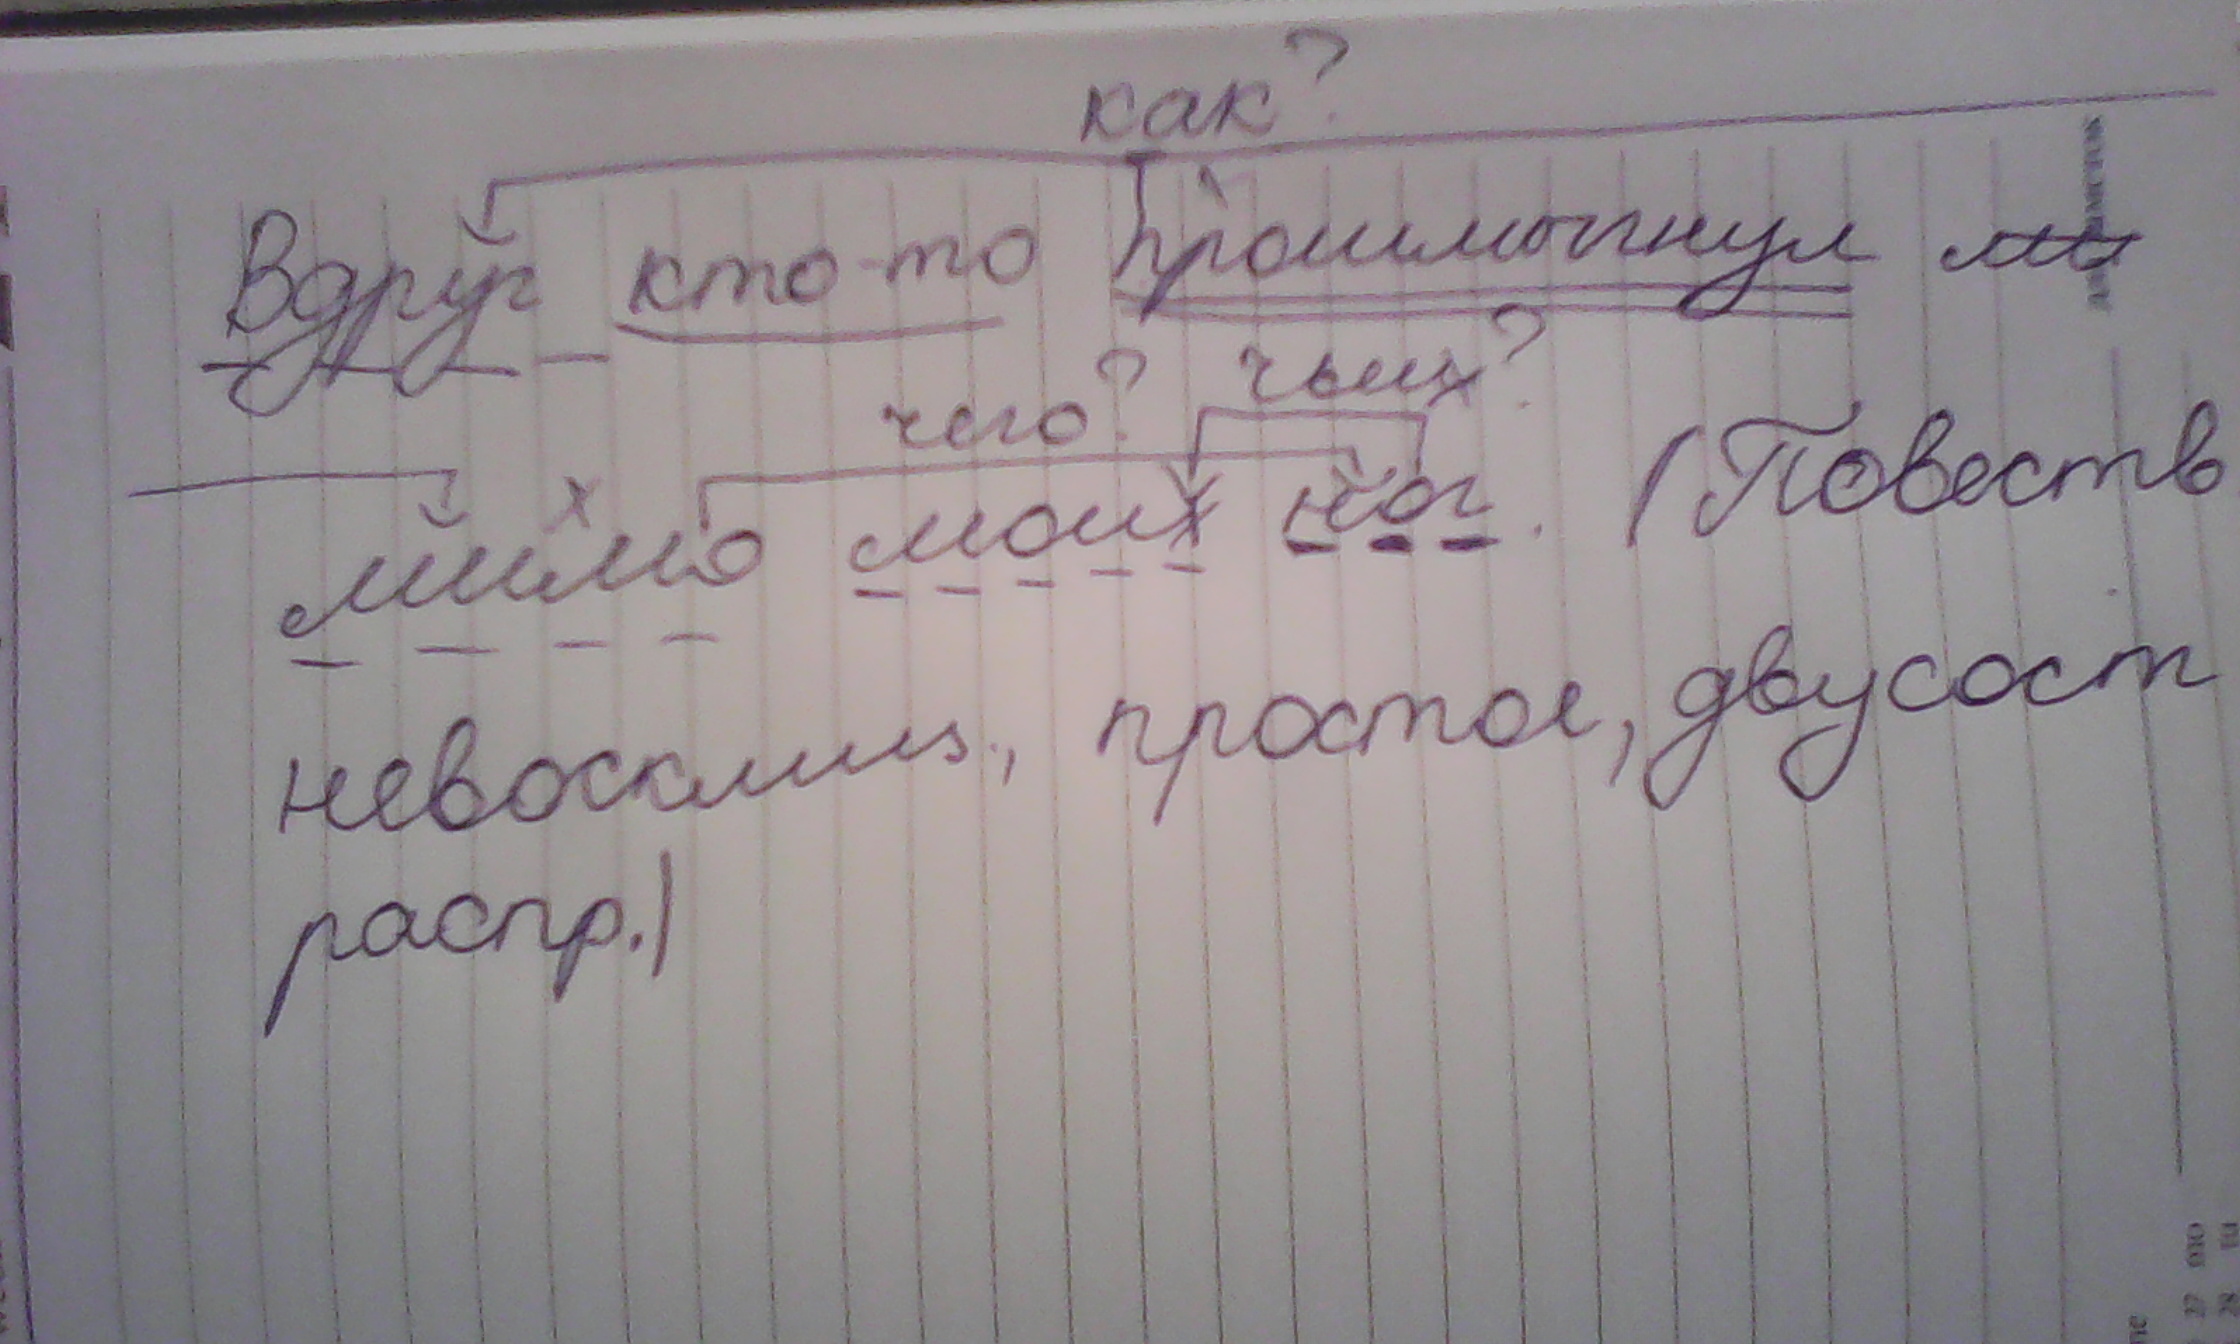 как?
Вдруг кто-то прошмыгнул
чего? чьих?
х
мимо моих ног. (Повеств
невосклиц., простое, двусост
распр.)
27 28